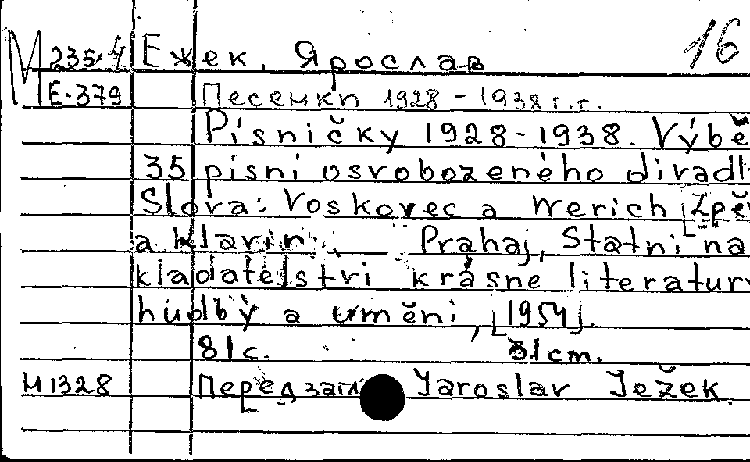 16
М 235.4 Ежек, Ярослав
Е-379 Песенки 1928-1938 г.г.
Písničky 1928-1938. Výbě
35 písni osvobozeného divadl
Slova: Voskovec a Werich [Zpě
a klavir. Prahaj, Statni na
kladatelstvi krásne literatury
hudby a uměni, [1954].
81 с. 31 cm.
М1328 Перед загл. Jaroslav Ježek.